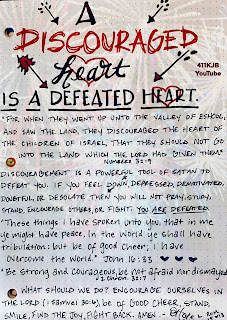 A
DISCOURAGED
411KJB
YouTube
heart
IS A DEFEATED HEART.
"FOR WHEN THEY WENT UP UNTO THE VALLEY OF ESHCOL,
AND SAW THE LAND, THEY DISCOURAGED THE HEART OF
THE CHILDREN OF ISRAEL, THAT THEY SHOULD NOT GO
INTO THE LAND WHICH THE LORD HAD GIVEN THEM."
NUMBERS 32:9
DISCOURAGEMENT IS A POWERFUL TOOL OF SATAN TO
DEFEAT YOU. IF YOU FEEL DOWN, DEPRESSED, DEMOTIVATED,
DOUBTFUL, OR DESOLATE THEN YOU WILL NOT PRAY, STUDY,
STAND, ENCOURAGE OTHERS, OR FIGHT. YOU ARE DEFEATED.
"These things I have spoken unto you, that in me
ye might have peace. In the world ye shall have
tribulation: but be of good cheer; I have
Overcome the world." John 16:33
"Be strong and Courageous, be not afraid nor dismayed
2 Chron 32:7
WHAT SHOULD WE DO? ENCOURAGE OURSELVES IN
THE LORD (1 Samuel 30:6), BE OF GOOD CHEER, STAND,
SMILE, FIND THE JOY, FIGHT BACK. AMEN.